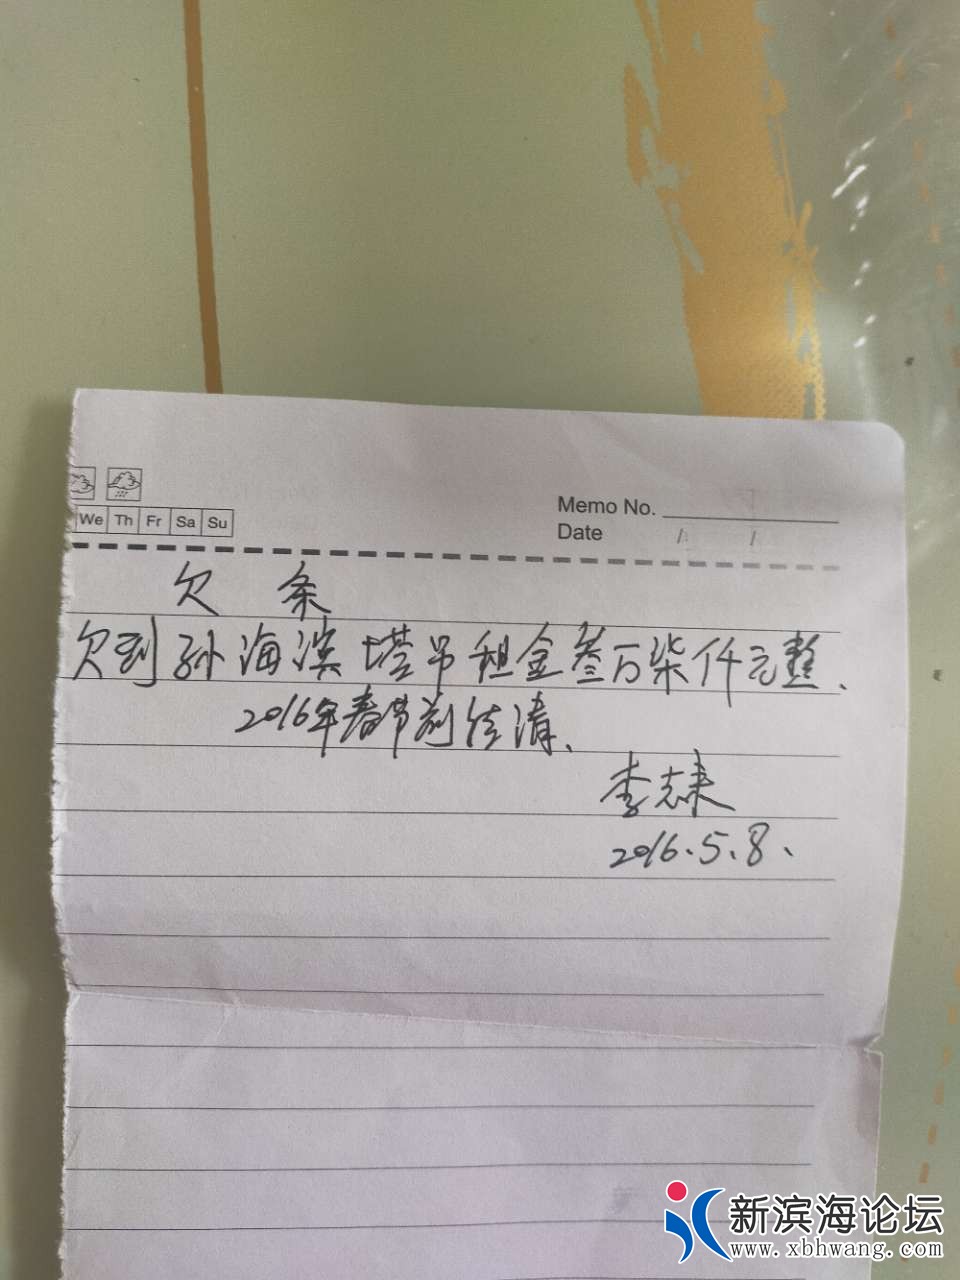 Memo No.
We Th Fr Sa Su
Date / /
欠 条
欠到孙海滨塔吊租金叁万柒仟元整、
2016年春节前结清、
李志来
2016.5.8、
新滨海论坛
www.xbhwang.com